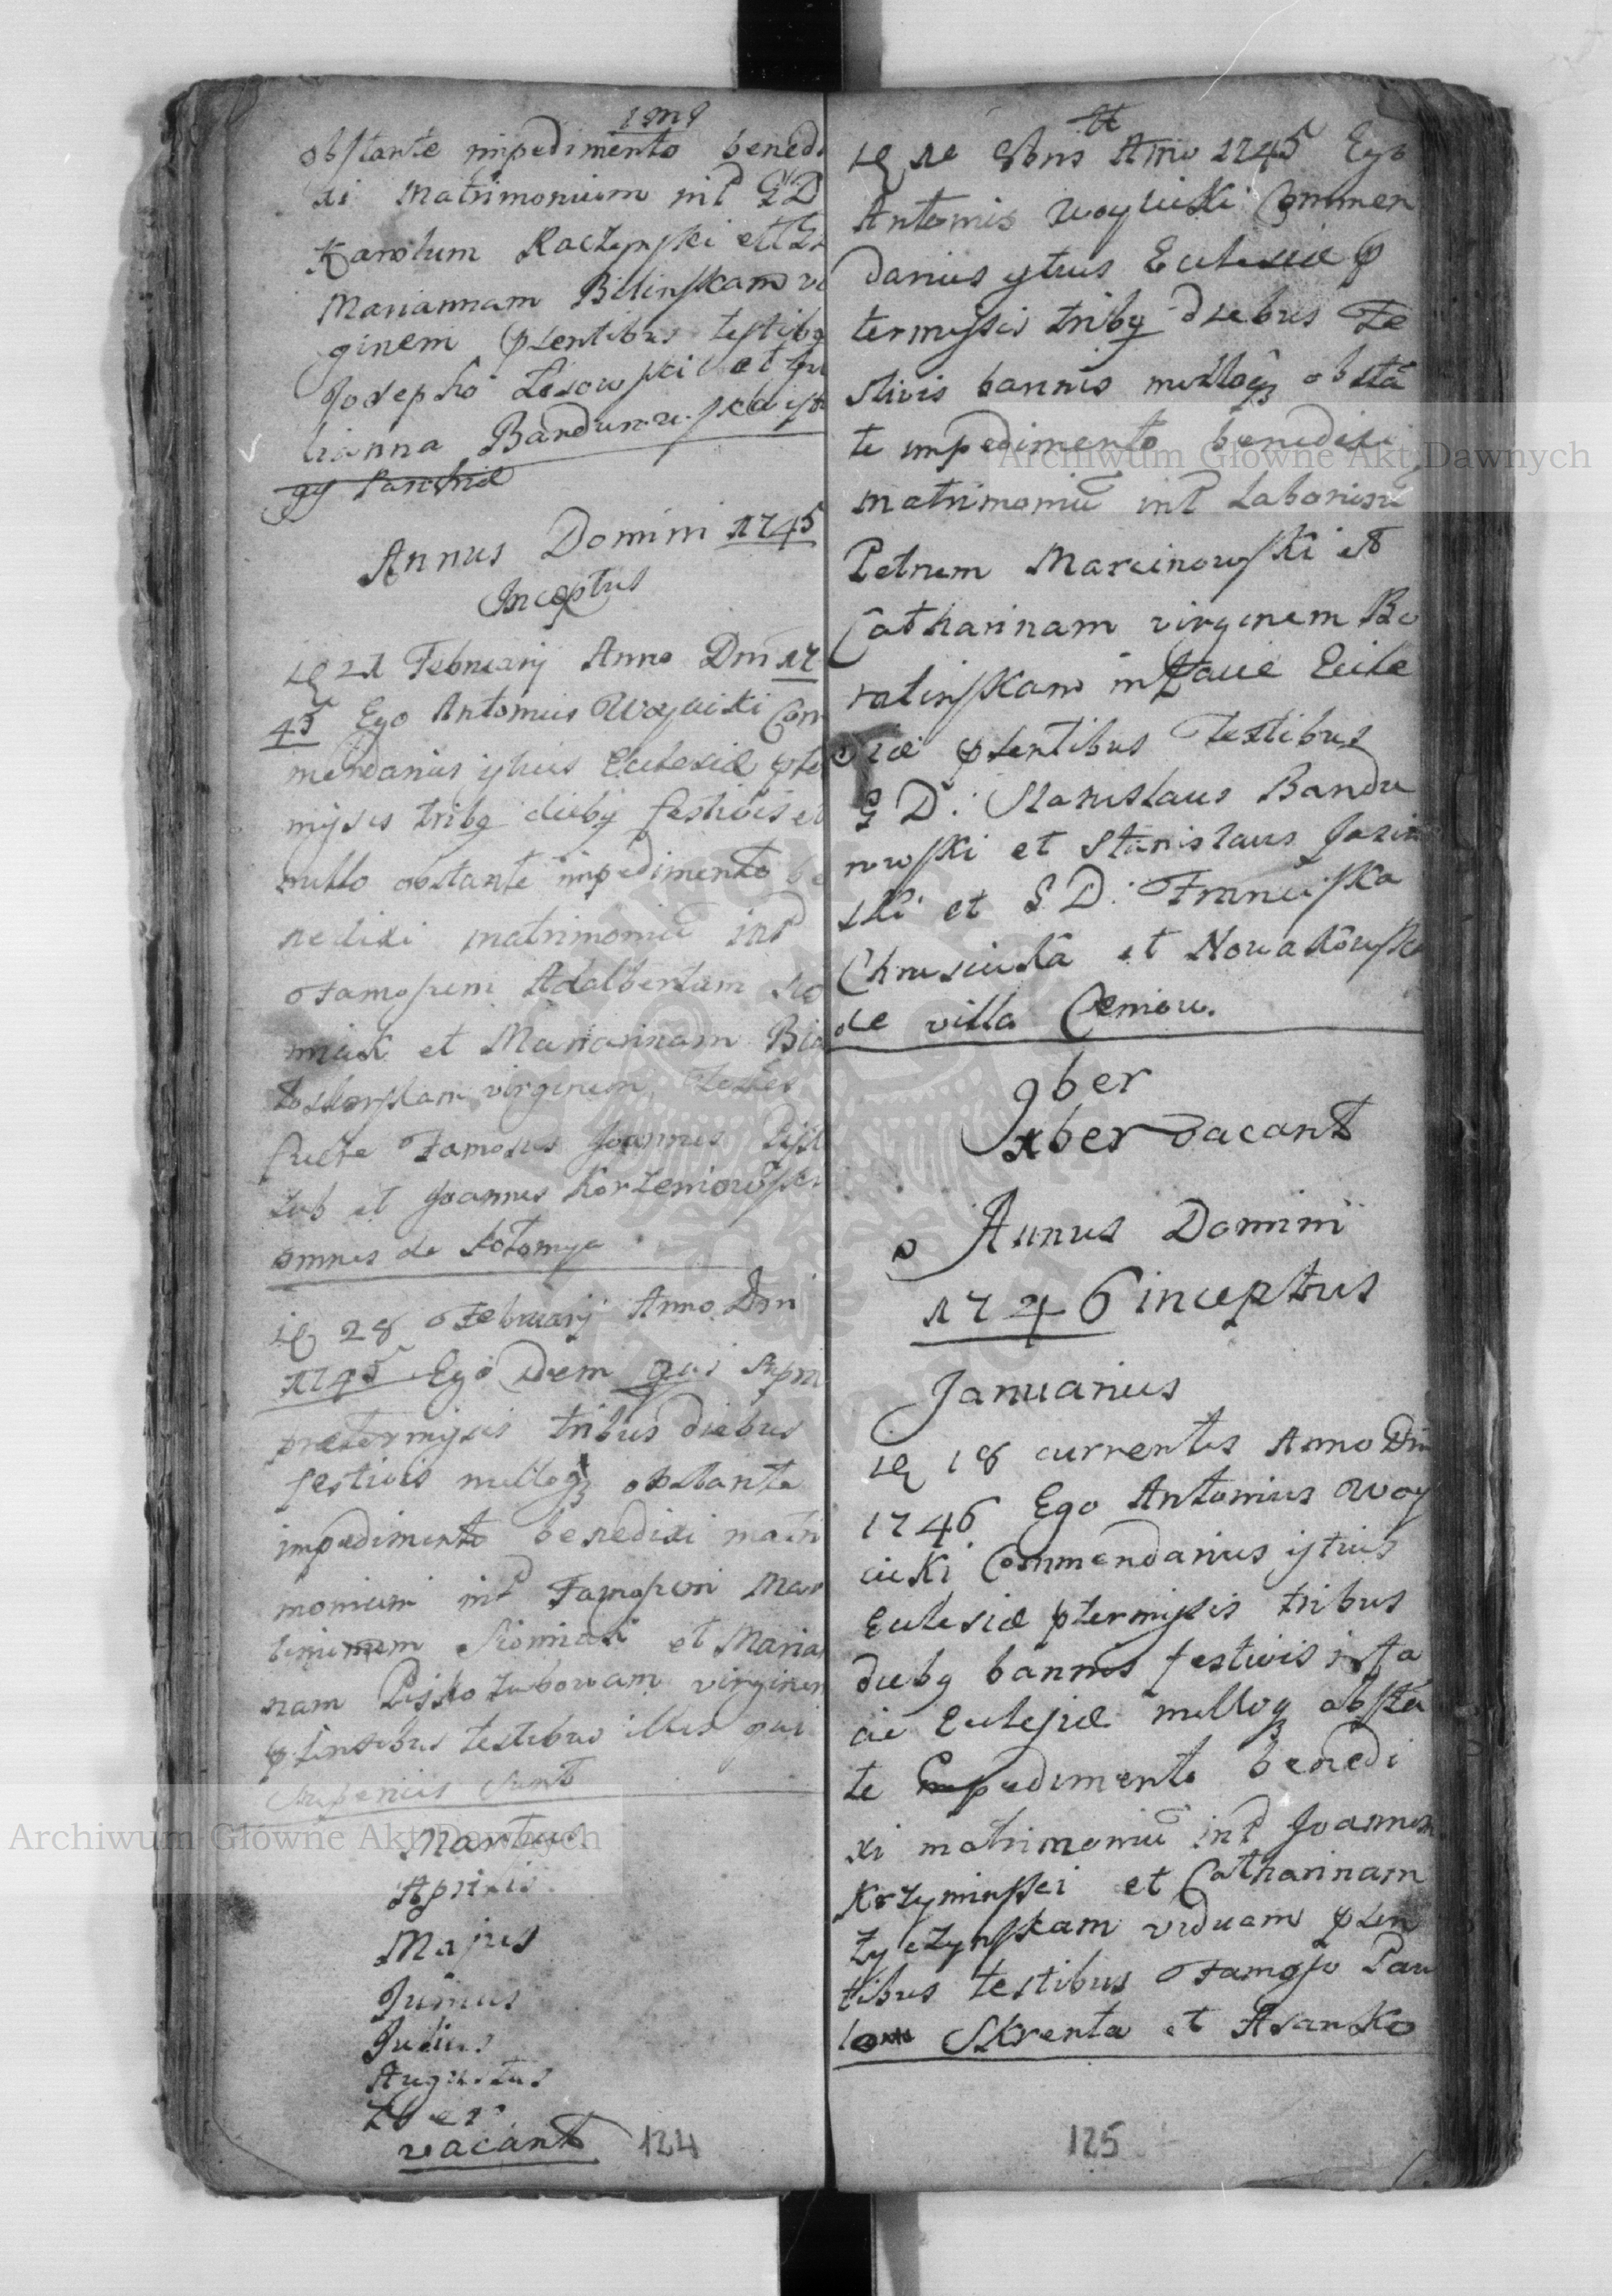 obstante impedimento benedi
xi Matrimonium int G D
Karolum Raczynski et G
Mariannam Bilinskam vi
ginem ptentibus testibq
Josepho Lisowski et Ju
lianna Bandurowska
Parochiæ
Annus Domini 1745
Inceptus
21 Februarij Anno Dni 17
45 Ego Antonius Woycicki Com
mendarius ystius Eclesiæ pter
mysis tribq diebq festivis et
nullo obstante impedimento be
nedixi matrimoniu int
Famosum Adalbertum
et Mariannam
virginem testes
fuere Famosus Joannes
zub et Joannes Korzeniowski
omnes de Kotomya
28 Februarij Anno Dni
1745 Ego Idem qui supra
pretermysis tribus diebus
festivis nulloq obstante
impedimento benedixi matri
monium int Famosum Mar
et Marian
nam Piskozubowam virginem
ptentibus testibus illis qui
superius sunt
Martius
Aprilis
Majus
Junius
Julius
Augustus
7ber
vacant
124
8bris Anno 1745 Ego
Antonius Woycicki Commen
darius ystius Eclesiæ p
termysis tribq diebus Fe
stivis bannis nulloq obsta
te impedimento benedixi
matrimoniu int Laboriosu
Petrum Marcinowski et
Catharinam virginem Bo
ratinskam in facie Eccle
siæ ptentibus Testibus
G D: Stanislaus Bandu
rowski et Stanislaus Jasin
ski et G D: Franciska
Chrusicka et Nowakowska
de villa Ceniow.
9ber
xber vacant
Annus Domini
1746 inceptus
Januarius
18 currentis Anno Dni
1746 Ego Antonius Woy
cicki Commendarius ystius
Eclesiæ ptermysis tribus
diebq bannis festivis in fa
cie Eclesiæ nulloq obsta
te Impedimento benedi
xi matrimoniu int Joannem
Krzyminski et Catharinam
Zyczynskam viduam pten
tibus testibus Famoso Pau
lo Skrenta et Asanko
125
Archiwum Główne Akt Dawnych
Archiwum Główne Akt Dawnych